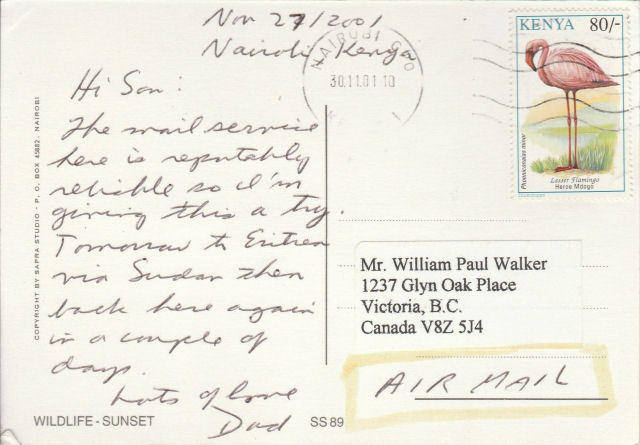 Nov 27/2001
Nairobi Kenya
Hi Son:
The mail service
here is reputably
reliable so I'm
giving this a try.
Tomorrow to Eritrea
via Sudan then
back here again
in a couple of
days.
Lots of love
Dad
WILDLIFE - SUNSET
SS 89
COPYRIGHT BY SAPRA STUDIO - P. O. BOX 45882, NAIROBI
NAIROBI
30.11.01 10
KENYA 80/-
Phoeniconaias minor
Lesser Flamingo
Heroe Mdogo
Mr. William Paul Walker
1237 Glyn Oak Place
Victoria, B.C.
Canada V8Z 5J4
AIR MAIL